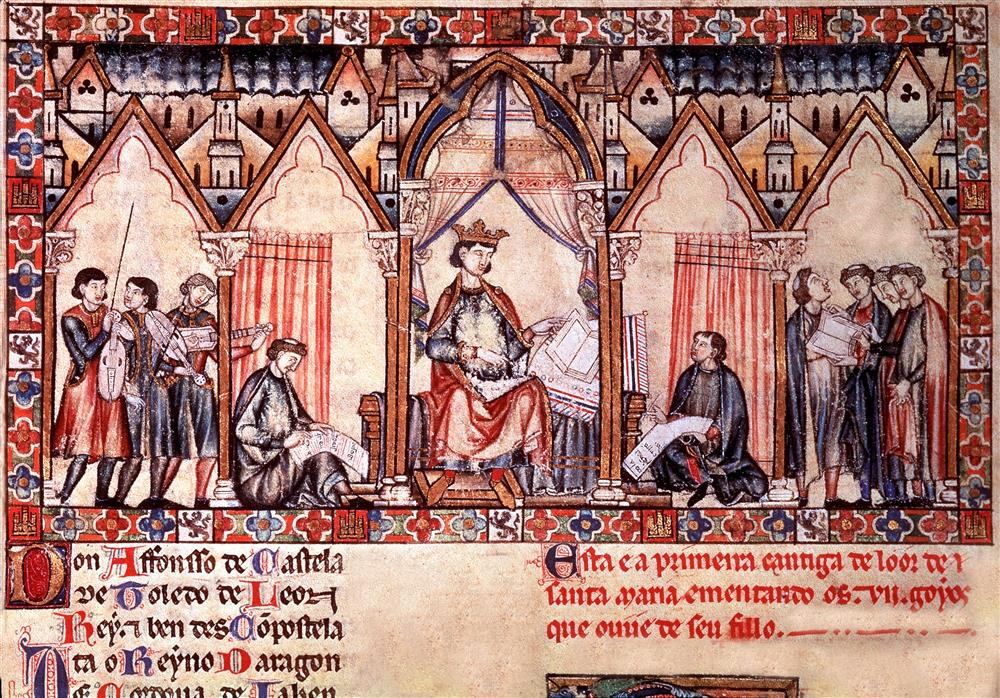 Don Affonsso de Castela
de Toledo de Leon
Rey. ⁊ ben des Cõpostela
ta o Reyno Daragon
De Cordoua de Iahen
Esta e a primeira cantiga de loor de
santa maria ementando os .vii. goyos
que ouue de seu fillo.